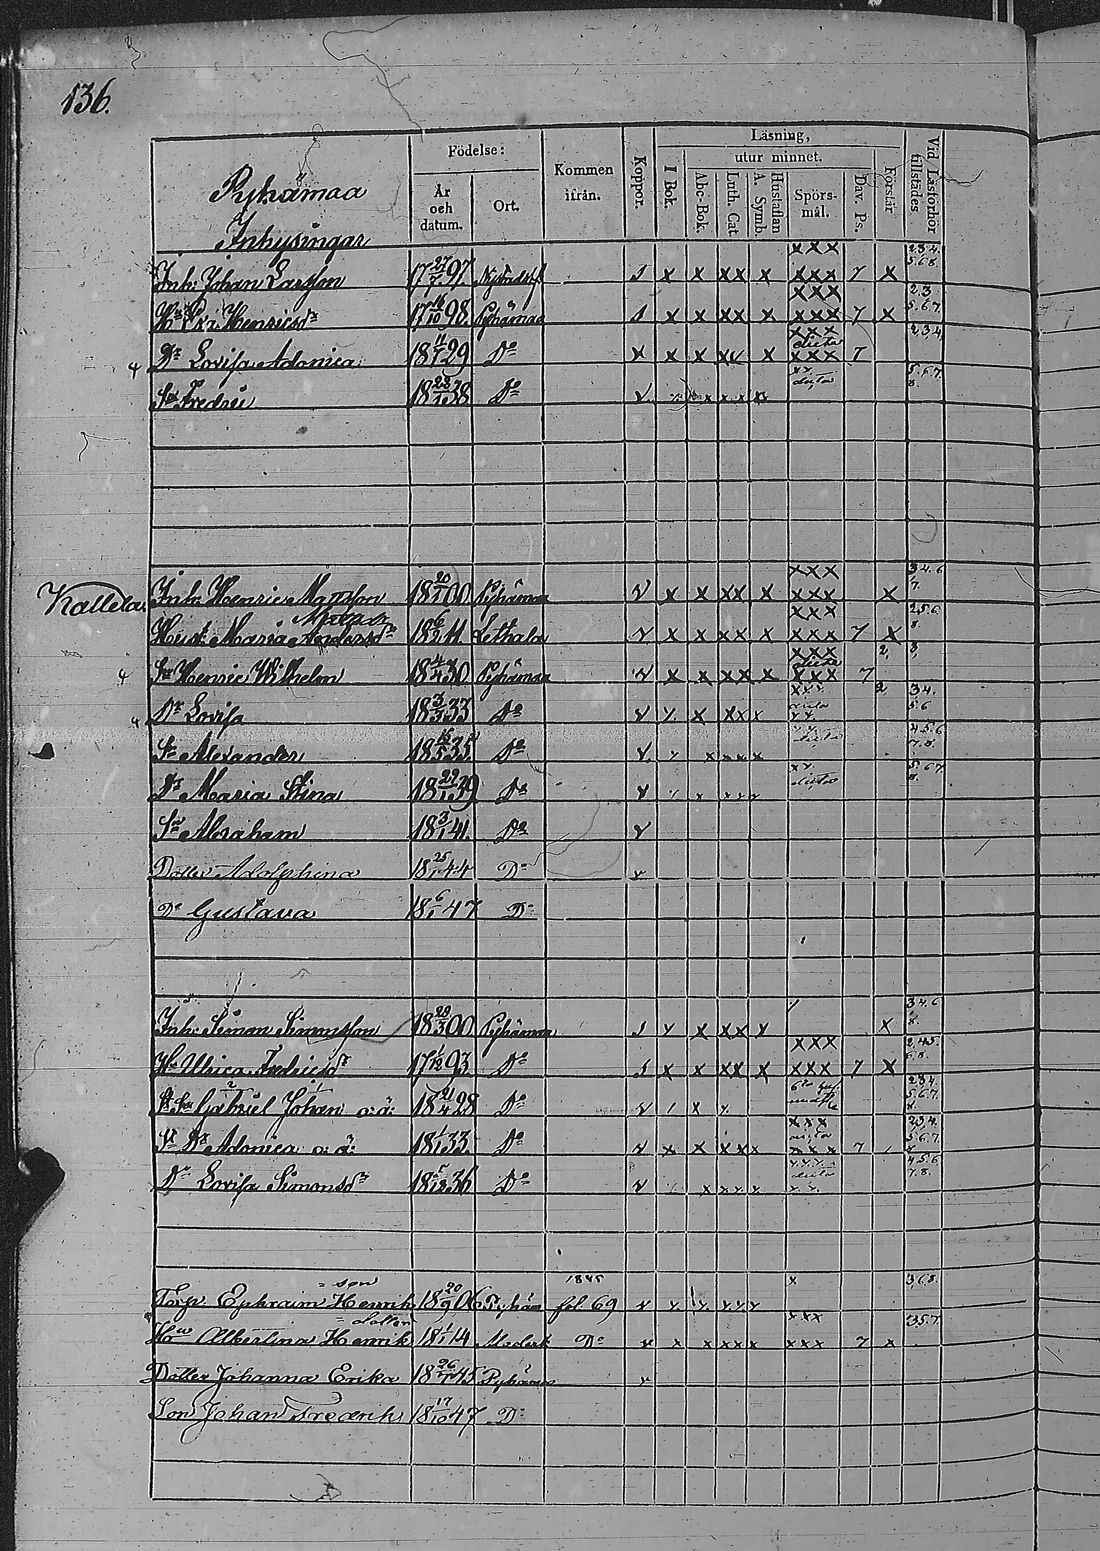 136.
Pyhämaa
Inhysingar
Födelse:
År och datum.
Ort.
Kommen ifrån.
Koppor.
Läsning,
utur minnet.
I Bok.
Abc-Bok.
Luth. Cat.
Hustaflan A. Symb.
Spörs-mål.
Dav. Ps.
Förstår
Vid Läsförhör tillstädes
Inh. Johan Larsson 17 27/7 97. s x x xx x xxx xxx 7 x 2.3.4. 5.6.8.
Henricsdr 17 16/10 98 Pyhämaa s x x xx x xxx xxx 7 x 2.3. 5.6.7.
Dr Lovisa Adonica 18 11/1 29 Do x x x x xxx dito xxx 7 2,3,4,
Sn Fredric 18 23/1 38 Do v xx dito 5.6.7. 8.
Kallela
Inh. Henric Mattsson 18 20/1 00 Pyhämaa v x x xx x xxx xxx x 3.4.6 7.
Hust. Maria Andersdr 18 6/2 11 Lethala v x x xx x xxx xxx 7 x 2.5.6 8.
Sn Henric Wilhelm 18 4/4 30 Pyhämaa v x x xx x xxx dito xxx 7 2, 3,
Dr Lovisa 18 3/3 33 Do v x x xx x xxx 2 3 4. 5.6
Sn Alexander 18 15/5 35 Do v x x x x x dito 4.5.6 7.8.
Dr Maria Stina 18 22/1 39 Do v xx dito 5.6.7 8.
Sn Abraham 18 3/1 41. Do v
Dotter Adolphina 18 25/1 44 Do v
Do Gustava 18 6/1 47 Do
Inh. Simon Simonsson 18 28/3 00 Pyhämaa s x x xx x x 3.4.6 8.
Hu Ulrica Fredricsdr 17 1/12 93 Do s x x xx x xxx xxx 7 x 2.4.5. 6.8.
Gabriel Johan o.ä. 18 21/4 28 Do v 2.3.4. 5.6.7. 8.
Dr Adonica o.ä. 18 1/1 33. Do v x x xx x xxx xxx 7 2,3,4. 5.6.7.
Do Lovisa Simonsdr 18 5/12 36 Do v 4.5.6 7.8.
Torp. Ephraim Henrik =son 18 20/9 06 Pyhäm 1845 fol. 69 v x x xx x x 3,6,8.
Hu Albertina Henrik =dotter 18 1/1 14 Do v x x xx x xxx xxx 7 x 3 5.7.
Dotter Johanna Erika 18 26/1 45 Pyhäm v
Son Johan Fredrik 18 17/10 47 Do